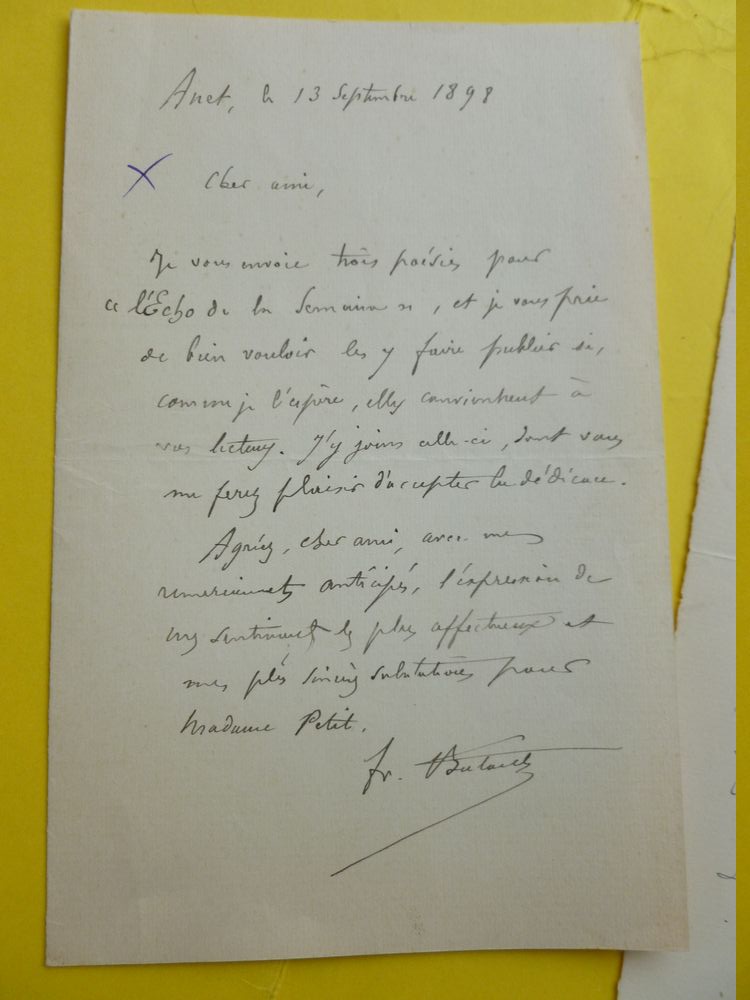 Anet, le 13 Septembre 1898
Cher ami,
Je vous envoie trois poésies pour
« l'Echo de la Semaine », et je vous prie
de bien vouloir les y faire publier si,
comme je l'espère, elles conviennent à
vos lecteurs. J'y joins celle-ci, dont vous
me ferez plaisir d'accepter la dédicace.
Agréez, cher ami, avec mes
remerciements anticipés, l'expression de
mes sentiments les plus affectueux et
mes plus sincères salutations pour
Madame Petit.
Fr.